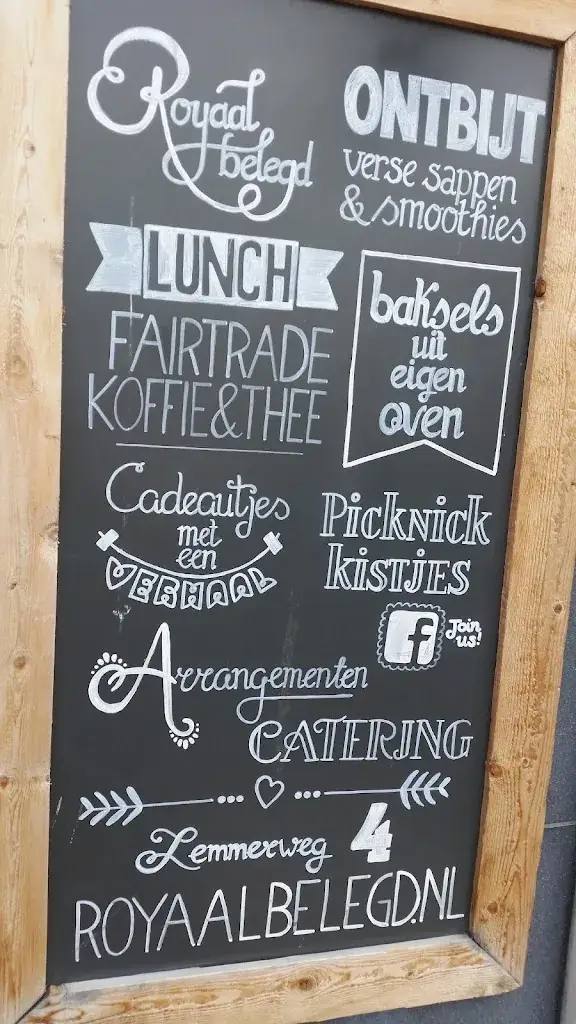 Royaal
belegd
ONTBIJT
verse sappen
& smoothies
LUNCH
FAIRTRADE
KOFFIE & THEE
baksels
uit
eigen
oven
Cadeautjes
met
een
VERHAAL
PICKNICK
KISTJES
f
Join
us!
Arrangementen
CATERING
Lemmerweg 4
ROYAALBELEGD.NL